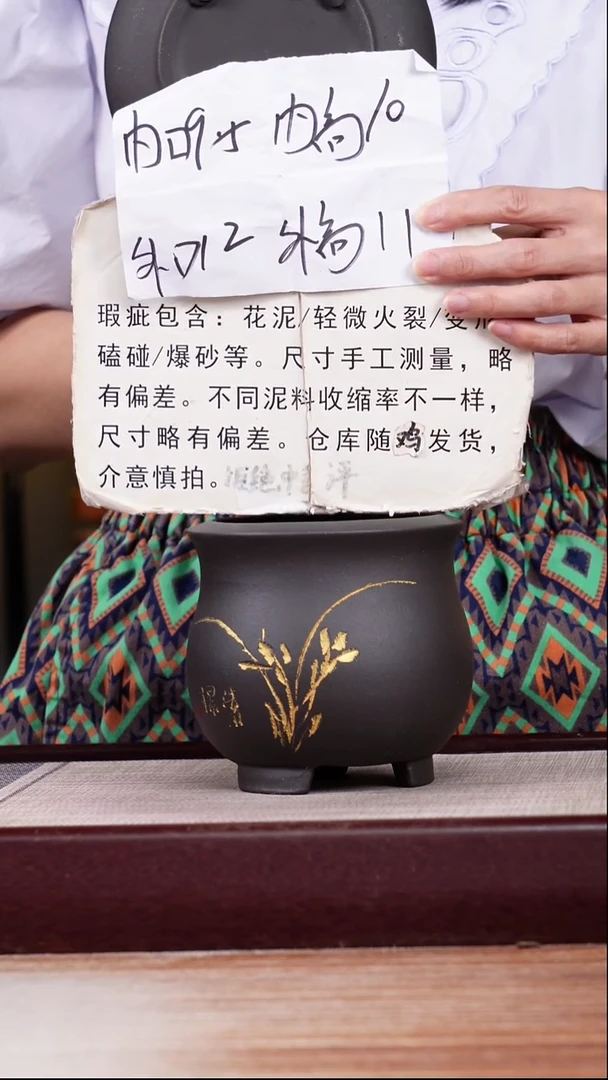 内口9寸 内高10
外口12 外高11
瑕疵包含：花泥/轻微火裂/变形
磕碰/爆砂等。尺寸手工测量，略
有偏差。不同泥料收缩率不一样，
尺寸略有偏差。仓库随鸡发货，
介意慎拍。